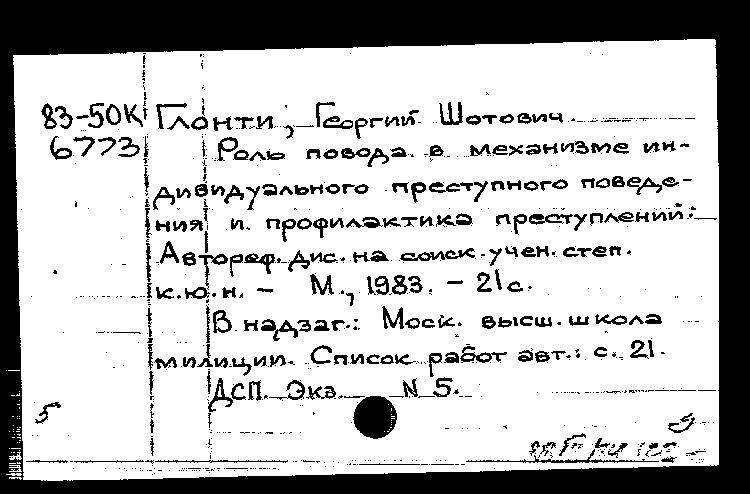 83-50К Глонти, Георгий Шотович.
6773 Роль повода в механизме ин-
дивидуального преступного поведе-
ния и профилактика преступлений:
Автореф. дис. на соиск. учен. степ.
к.ю.н. – М., 1983. – 21 с.
В надзаг.: Моск. высш. школа
милиции. Список работ авт.: с. 21.
ДСП. Экз. N 5.
5